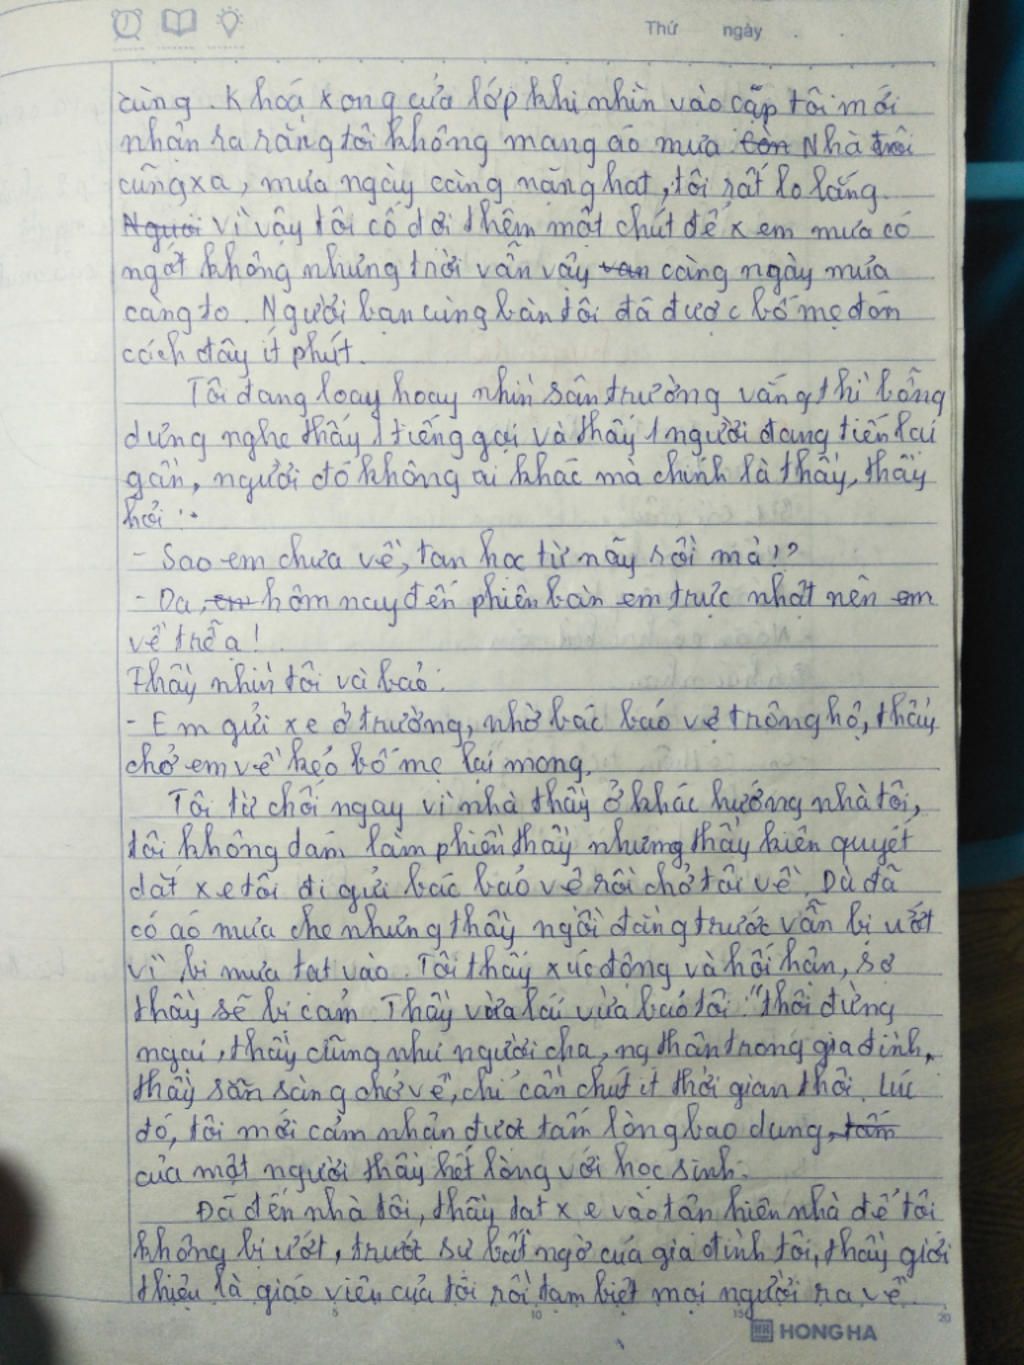 Thứ ngày
cùng. Khoá xong cửa lớp khi nhìn vào cặp tôi mới
nhận ra rằng tôi không mang áo mưa. còn Nhà tôi
cũng xa, mưa ngày càng nặng hạt, tôi rất lo lắng.
Người vì vậy tôi cố đợi thêm một chút để xem mưa có
ngớt không nhưng trời vẫn vậy van càng ngày mưa
càng to. Người bạn cùng bàn tôi đã được bố mẹ đón
cách đây ít phút.
Tôi đang loay hoay nhìn sân trường vắng thì bỗng
dưng nghe thấy 1 tiếng gọi và thấy 1 người đang tiến lại
gần, người đó không ai khác mà chính là thầy, thầy
hỏi:
- Sao em chưa về, tan học từ nãy rồi mà!?
- Dạ, em hôm nay đến phiên bàn em trực nhật nên em
về trễ ạ!
Thầy nhìn tôi và bảo:
- Em gửi xe ở trường, nhờ bác bảo vệ trông hộ, thầy
chở em về kẻo bố mẹ lại mong.
Tôi từ chối ngay vì nhà thầy ở khác hướng nhà tôi,
tôi không dám làm phiền thầy nhưng thầy kiên quyết
dắt xe tôi đi gửi bác bảo vệ rồi chở tôi về. Dù đã
có áo mưa che nhưng thầy ngồi đằng trước vẫn bị ướt
vì bị mưa tạt vào. Tôi thấy xúc động và hối hận, sợ
thầy sẽ bị cảm. Thầy vừa lái vừa bảo tôi: "thôi đừng
ngại, thầy cũng như người cha, ng thân trong gia đình,
thầy sẵn sàng chở về, chỉ cần chút ít thời gian thôi. Lúc
đó, tôi mới cảm nhận được tấm lòng bao dung, tấm
của một người thầy hết lòng với học sinh.
Đã đến nhà tôi, thầy dắt xe vào tận hiên nhà để tôi
không bị ướt, trước sự bất ngờ của gia đình tôi, thầy giới
thiệu là giáo viên của tôi rồi tạm biệt mọi người ra về.
5 10 15 20
HH HONG HA